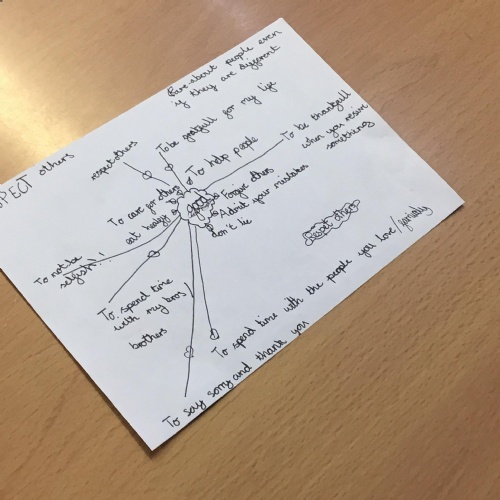 Care about people even
if they are different
To be gratfull for my life
To be thankfull
when you resive
something
respect others
SPECT others
To help people
To care for others
eat healthy
Forgive others
Admit your mistakes
don't lie
To not be
selfish!!!
To spend time
with my bros
brothers
To spend time with the people you love/
To say sorry and thank you